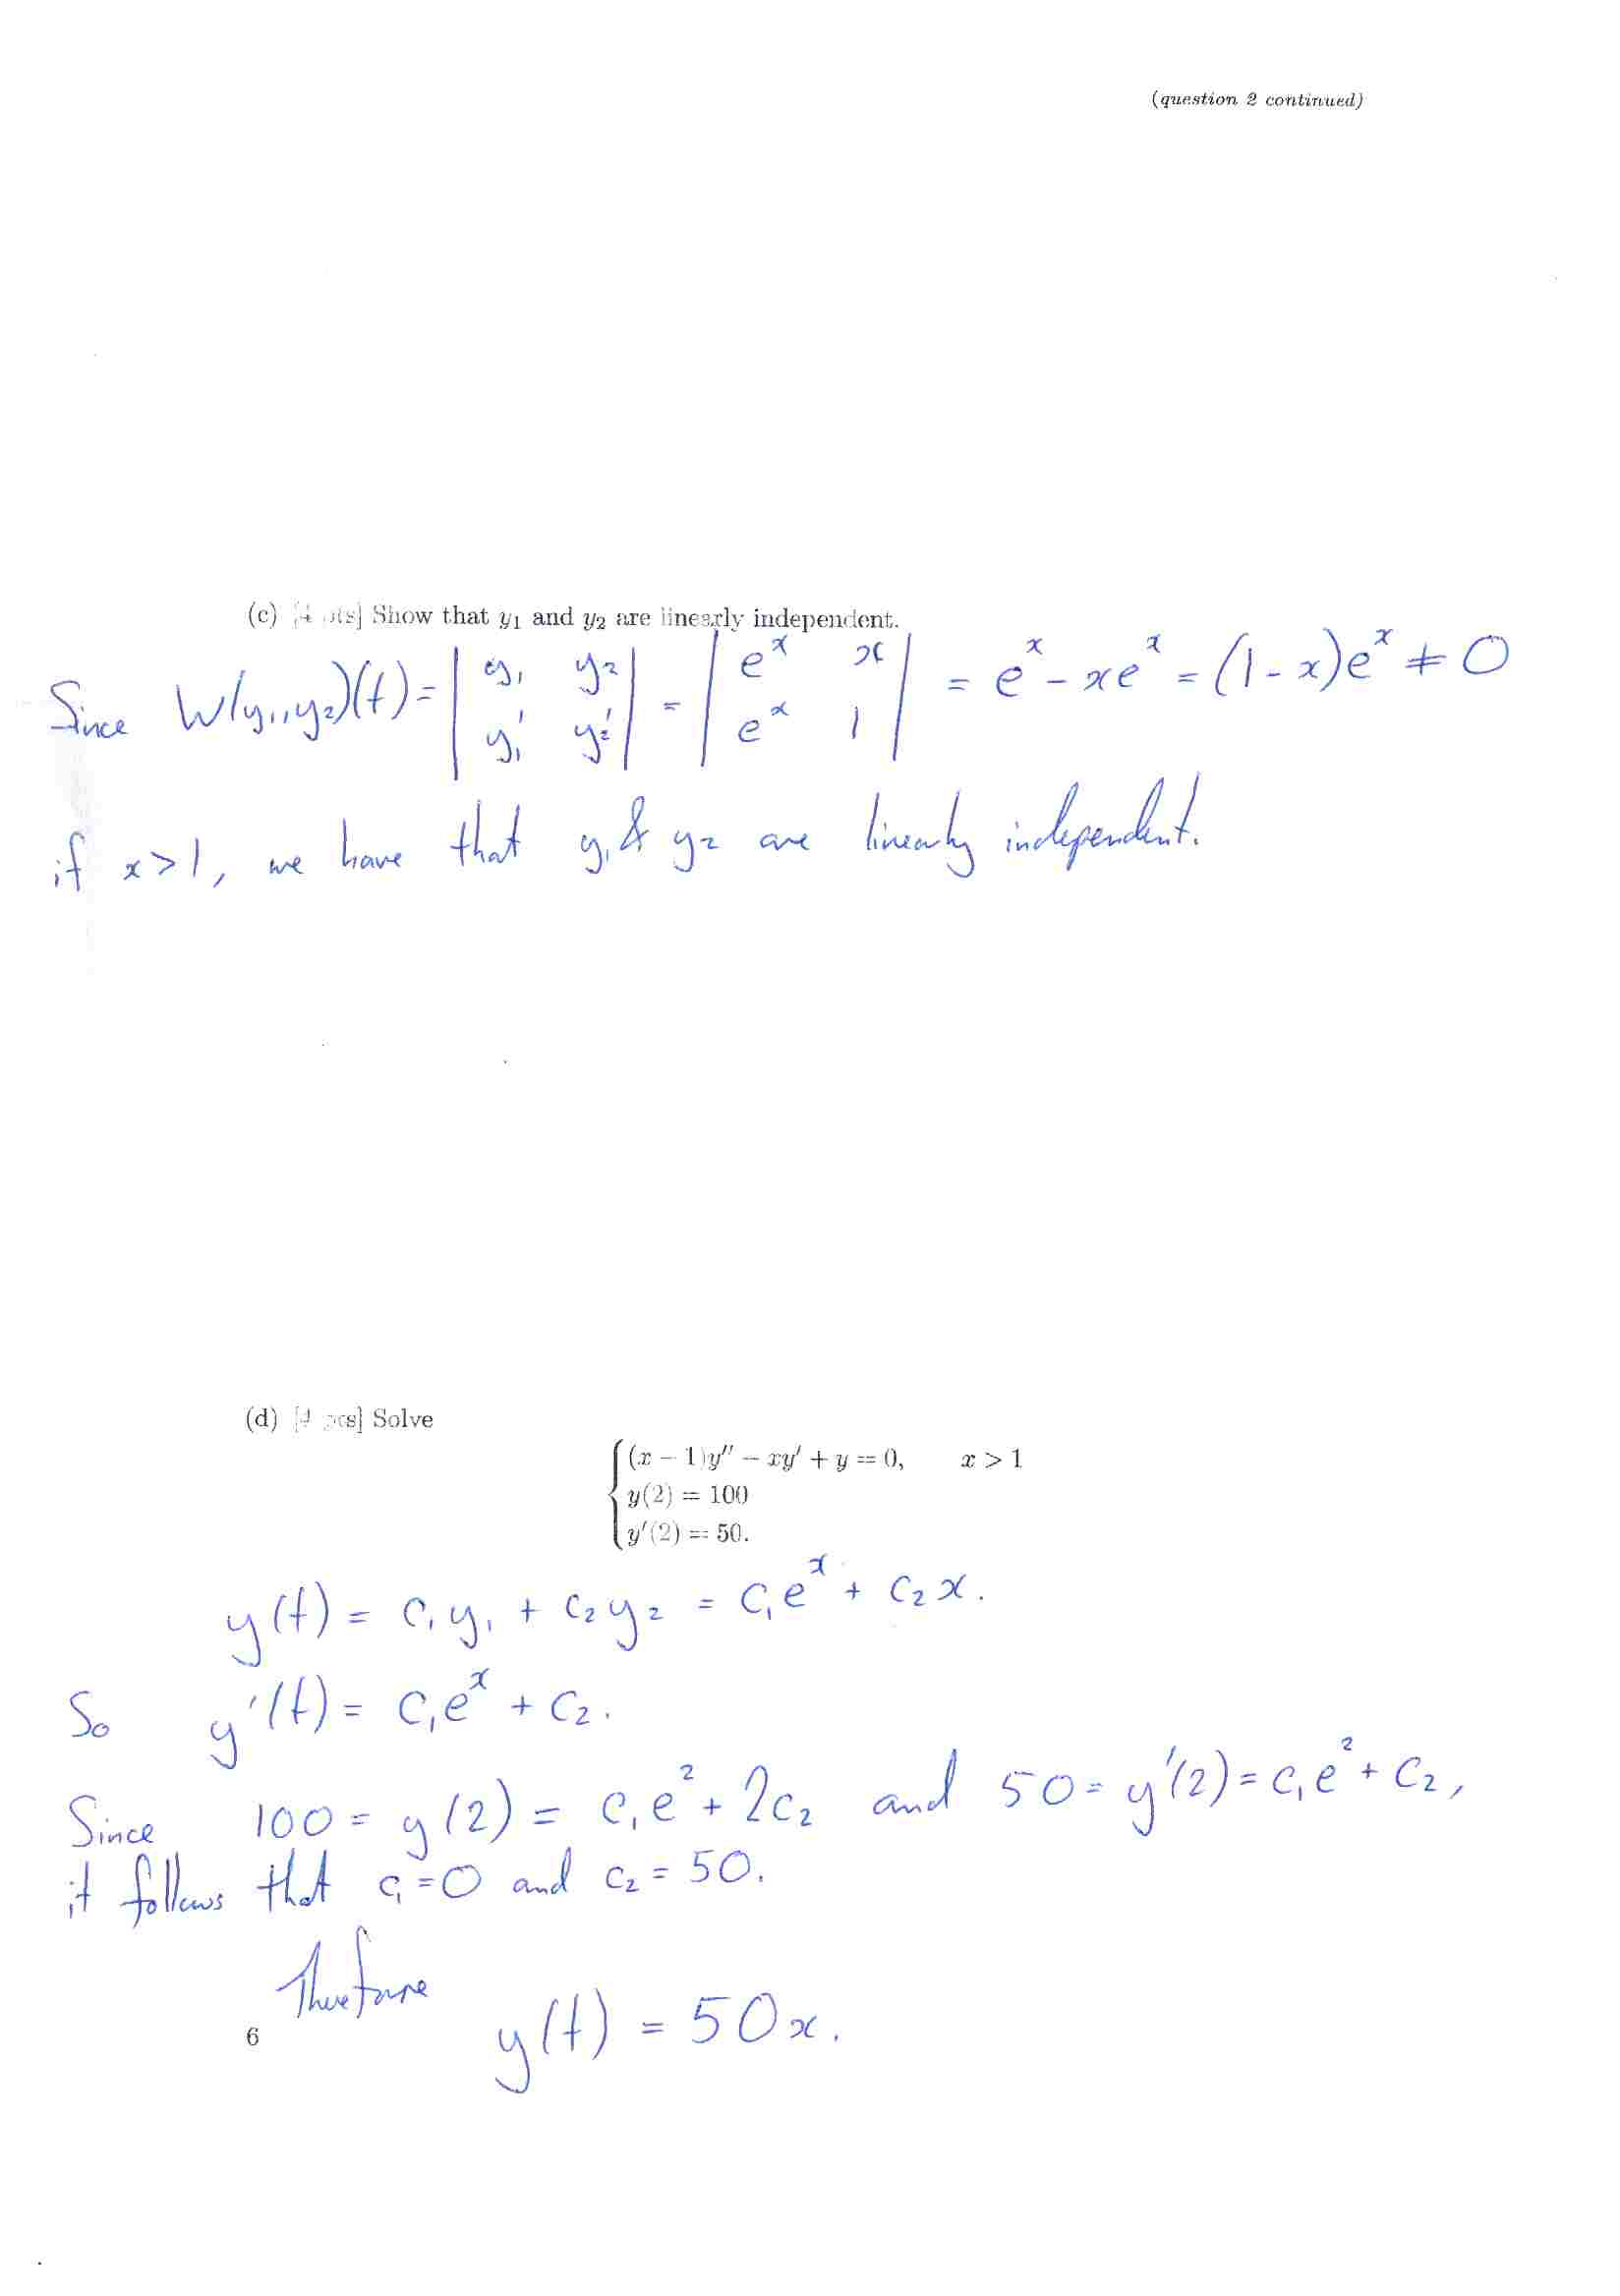 (question 2 continued)
(c) [4 pts] Show that y₁ and y₂ are linearly independent.
Since W(y₁,y₂)(t) = | y₁ y₂ ; y₁' y₂' | = | eˣ x ; eˣ 1 | = eˣ - xeˣ = (1-x)eˣ ≠ 0
if x>1, we have that y₁ & y₂ are linearly independent.
(d) [4 pts] Solve
(x − 1)y″ − xy′ + y = 0, x > 1
y(2) = 100
y′(2) = 50.
y(t) = c₁y₁ + c₂y₂ = c₁eˣ + c₂x.
So y'(t) = c₁eˣ + c₂.
Since 100 = y(2) = c₁e² + 2c₂ and 50 = y'(2) = c₁e² + c₂,
it follows that c₁=0 and c₂ = 50.
Therefore
y(t) = 50x.
6